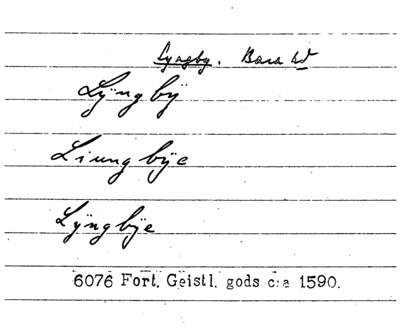 Lyngby. Bara hd
Lÿngbÿ
Liungbÿe
Lÿngbÿe
6076 Fort. Geistl. gods c:a 1590.